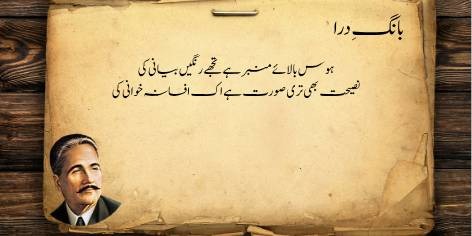 بانگِ درا
ہوس بالائے منبر ہے تجھے رنگیں بیانی کی
نصیحت بھی تری صورت ہے اک افسانہ خوانی کی